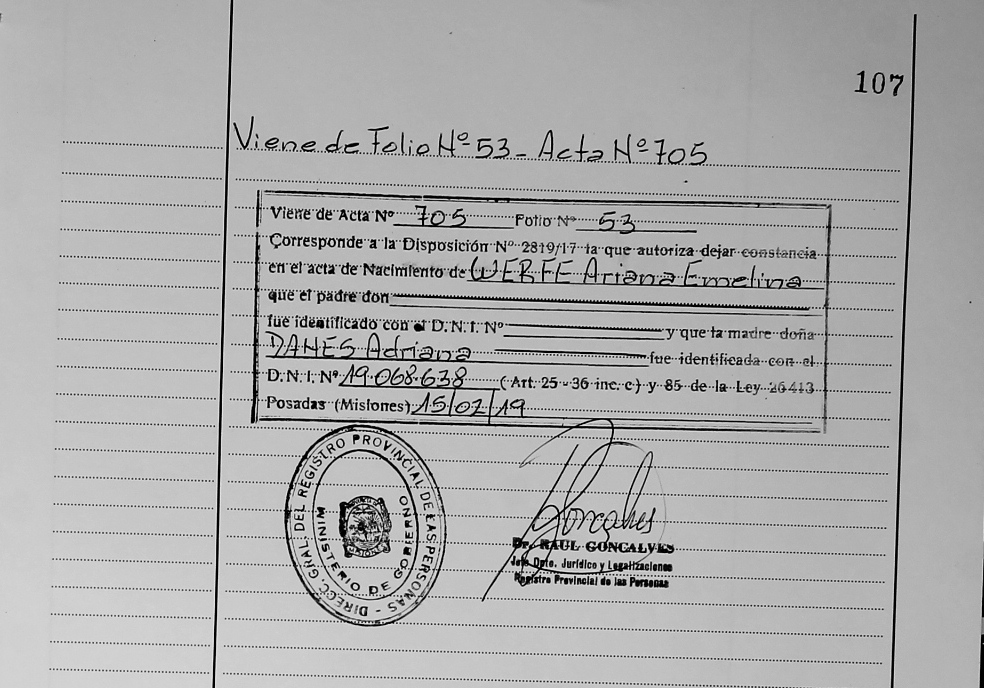 107
Viene de Folio Nº 53 - Acta Nº 705
Viene de Acta Nº 705 Folio Nº 53
Corresponde a la Disposición Nº 2819/17 la que autoriza dejar constancia
en el acta de Nacimiento de WERFE Ariana Emelina
que el padre don
fue identificado con el D.N.I. Nº y que la madre doña
DANES Adriana fue identificada con el
D.N.I. Nº 19.068.638 (Art. 25 - 36 inc. c) y 85 de la Ley 26413
Posadas (Misiones) 15/07/19
DIRECC. GRAL. DEL REGISTRO PROVINCIAL DE LAS PERSONAS
MINISTERIO DE GOBIERNO
Goncalves
Dr. RAUL GONCALVES
Jefe Dpto. Jurídico y Legalizaciones
Registro Provincial de las Personas